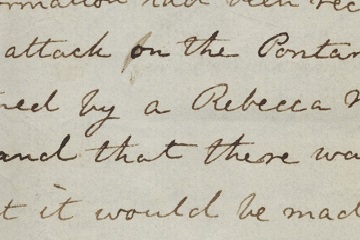 ormation had been rec
attack on the Pontar
ned by a Rebecca
and that there wa
t it would be mad